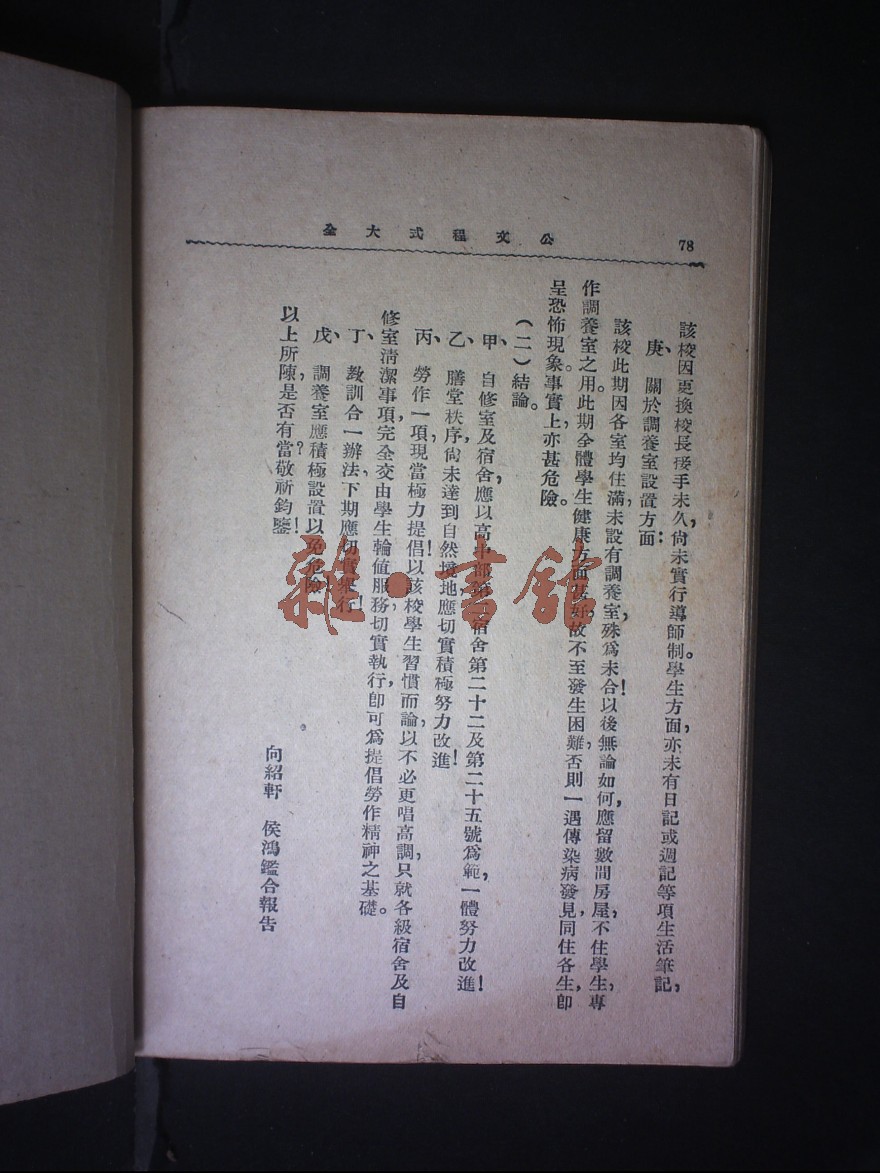 78
公文程式大全
該校因更換校長接手未久，尙未實行導師制。學生方面，亦未有日記或週記等項生活筆記，
庚、關於調養室設置方面：
該校此期因各室均住滿，未設有調養室，殊爲未合！以後無論如何，應留數間房屋，不住學生，專
作調養室之用。此期全體學生健康方面故不至發生困難，否則一遇傳染病發見，同住各生，卽
呈恐怖現象。事實上亦甚危險。
（二）結論。
甲、自修室及宿舍，應以高中部第宿舍第二十二及第二十五號爲範，一體努力改進！
乙、膳堂秩序，尙未達到自然境地，應切實積極努力改進！
丙、勞作一項，現當極力提倡！以該校學生習慣而論，以不必更唱高調，只就各級宿舍及自
修室淸潔事項，完全交由學生輪値服務，切實執行，卽可爲提倡勞作精神之基礎。
丁、敎訓合一辦法，下期應切實舉行！
戊、調養室應積極設置，以免危險！
以上所陳，是否有當？敬祈鈞鑒！
向紹軒　侯鴻鑑合報告
雜·書館